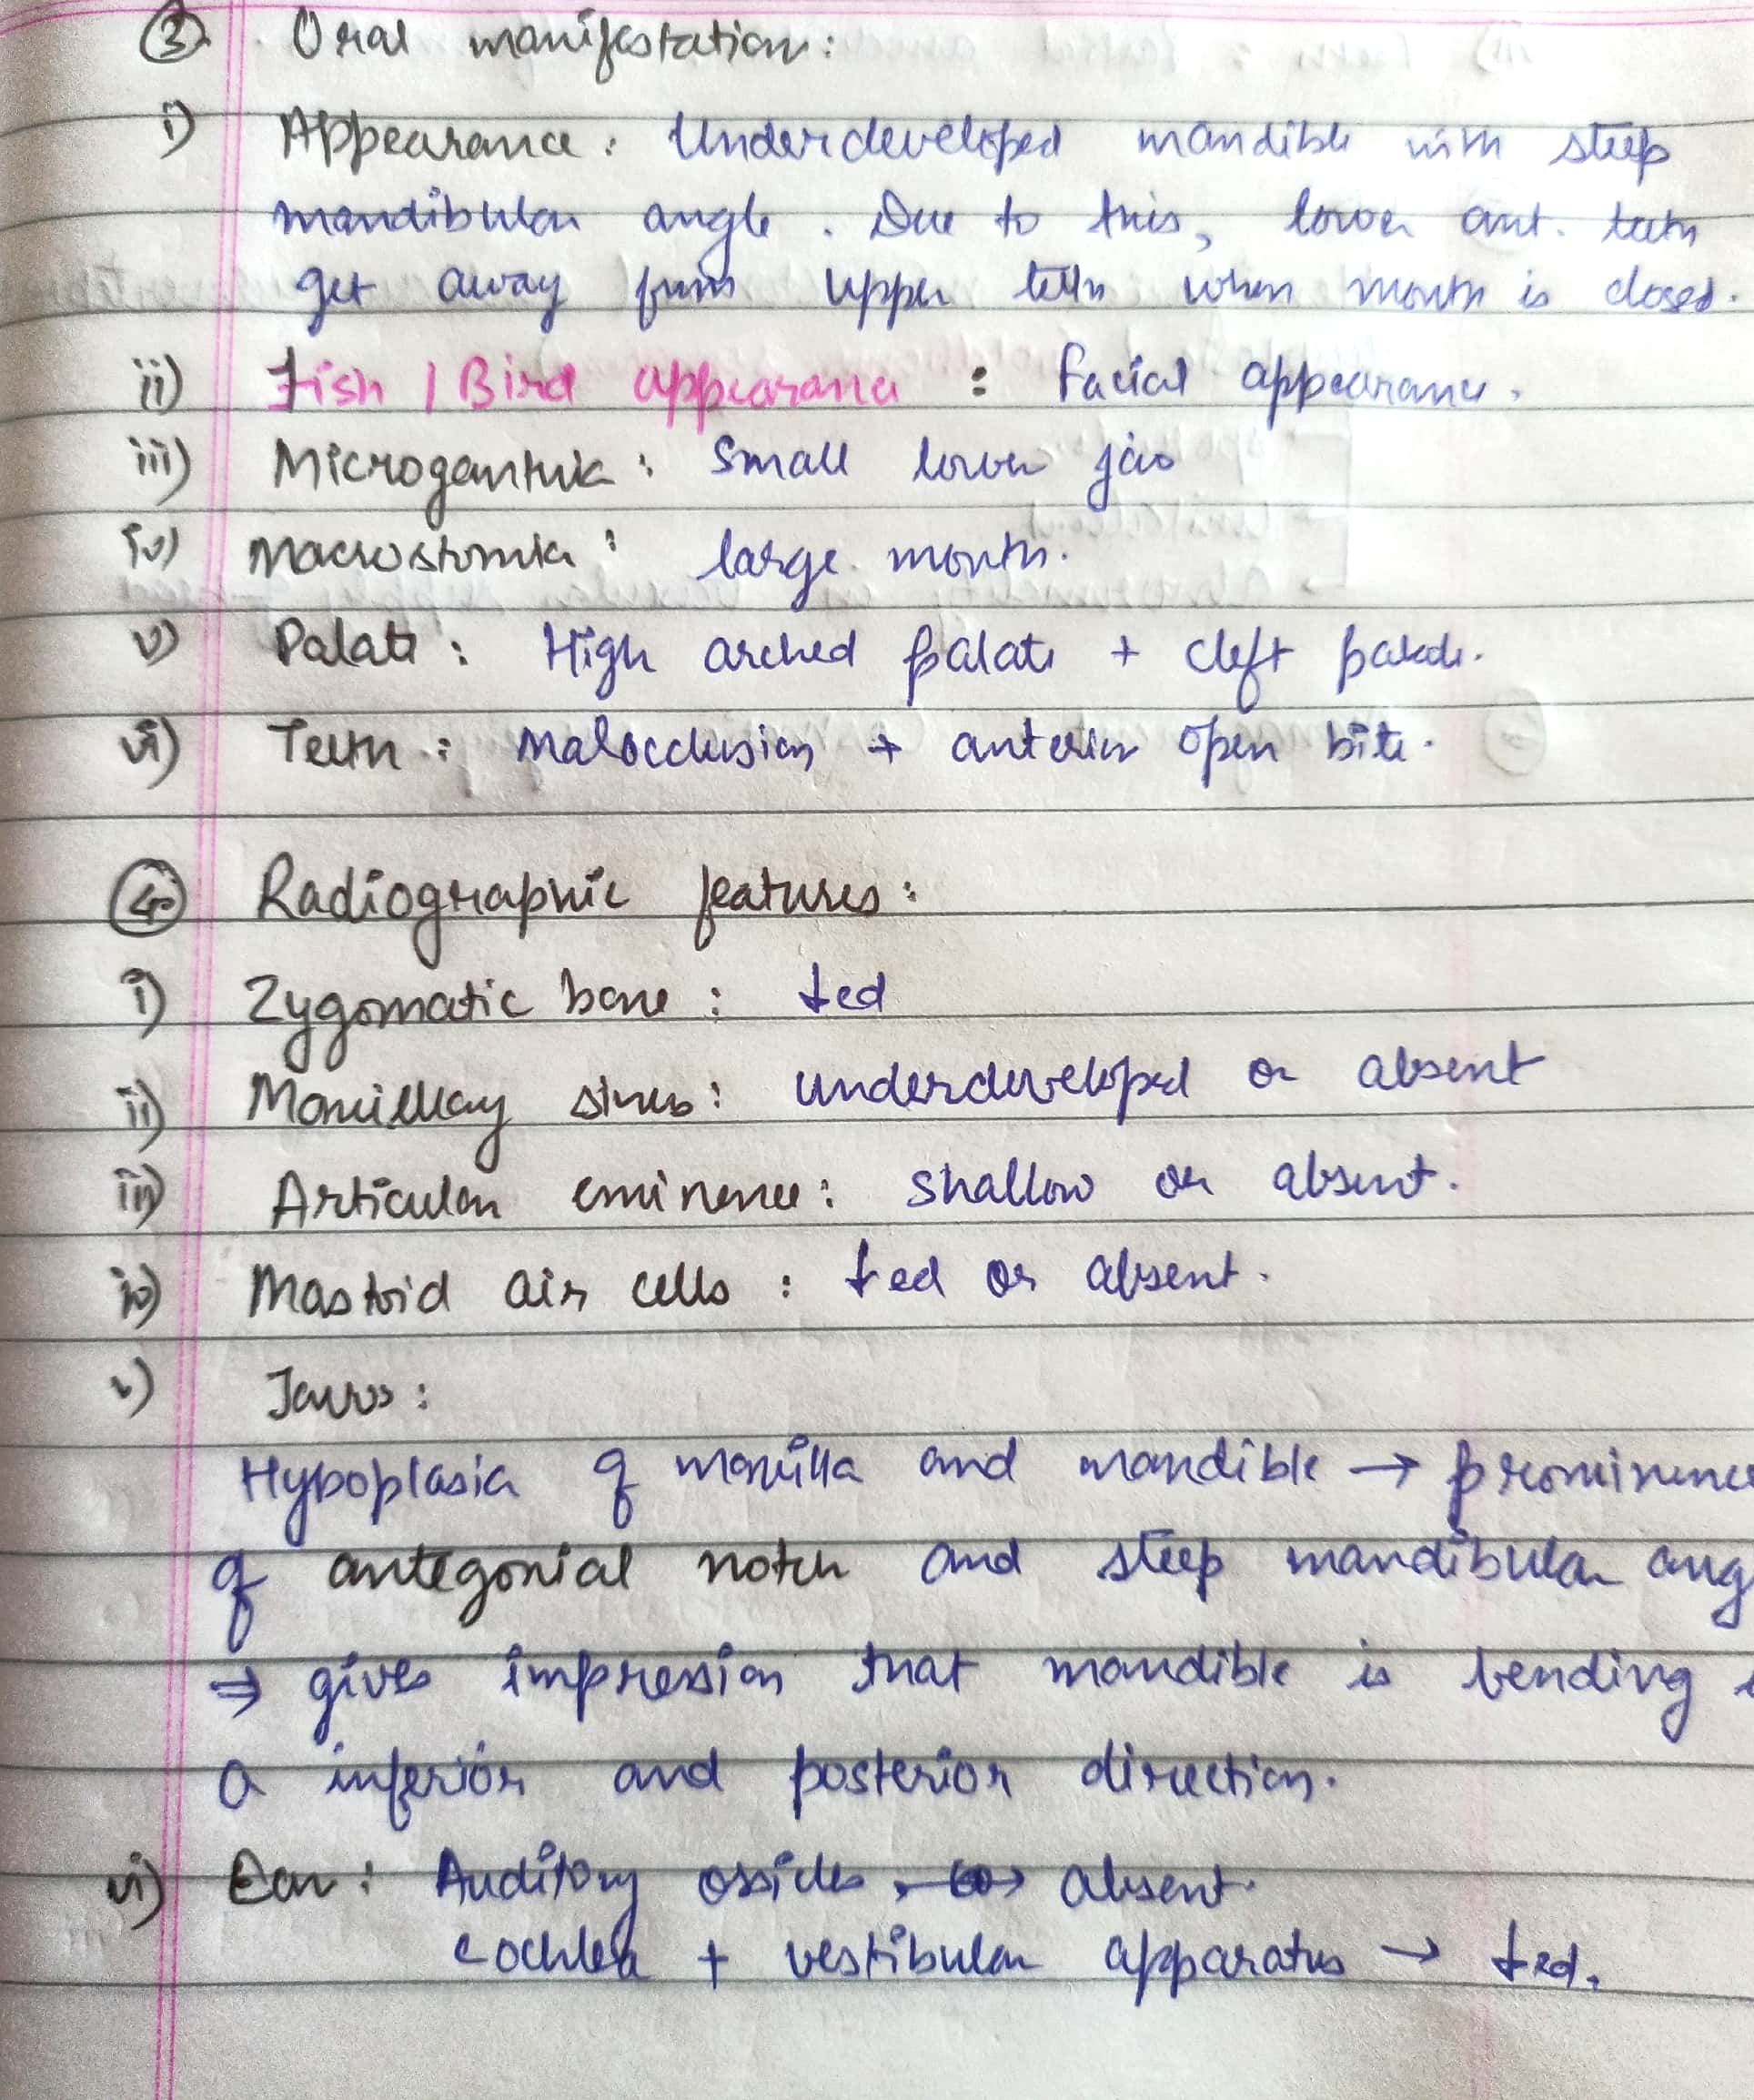 ③ Oral manifestation:
i) Appearance: Underdeveloped mandible with steep
mandibular angle. Due to this, lower ant. teeth
get away from upper teeth when mouth is closed.
ii) Fish / Bird appearance : facial appearance.
iii) Microganthia: Small lower jaw
iv) Macrostomia: large mouth.
v) Palate: High arched palate + cleft palate.
vi) Teeth: Malocclusion + anterior open bite.
④ Radiographic features:
i) Zygomatic bone: ↓ed
ii) Maxillay sinus: underdeveloped or absent
iii) Articular eminence: shallow or absent.
iv) Mastoid air cells: ↓ed or absent.
v) Jaws:
Hypoplasia of maxilla and mandible → prominence
of antegonial notch and steep mandibular ang
⇒ gives impression that mandible is bending
a inferior and posterior direction.
vi) Ear: Auditory ossicles → absent.
cochlea + vestibular apparatus → ↓ed.